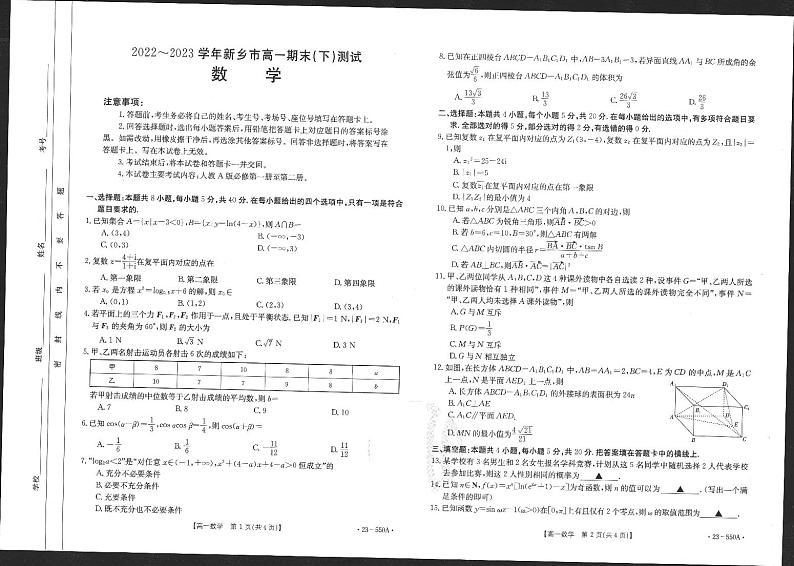 2022～2023 学年新乡市高一期末(下)测试
数 学
注意事项：
1.答题前,考生务必将自己的姓名、考生号、考场号、座位号填写在答题卡上。
2.回答选择题时,选出每小题答案后,用铅笔把答题卡上对应题目的答案标号涂
黑。如需改动,用橡皮擦干净后,再选涂其他答案标号。回答非选择题时,将答案写在
答题卡上。写在本试卷上无效。
3.考试结束后,将本试卷和答题卡一并交回。
4.本卷主要考试内容:人教 A 版必修第一册至第二册。
一、选择题:本题共 8 小题,每小题 5 分,共 40 分.在每小题给出的四个选项中,只有一项是符合
题目要求的.
1.已知集合 A={x|x−3<0},B={x|y=ln(4−x)},则 A∩B=
A.(3,4)
B.(−∞,−3)
C.(0,3)
D.(−∞,3)
2.复数 z=(4+i)/(1+i)在复平面内对应的点在
A.第一象限 B.第二象限 C.第三象限 D.第四象限
3.若 x₀ 是方程 的解,则 x₀∈
A.(0,1) B.(1,2) C.(2,3) D.(3,4)
4.若平面上的三个力 F₁,F₂,F₃ 作用于一点,且处于平衡状态.已知|F₁|=1 N,|F₃|=2 N,F₁
与 F₃ 的夹角为 60°,则 F₂ 的大小为
A.1 N B.√3 N C.√7 N D.3 N
5.甲、乙两名射击运动员各射击 6 次的成绩如下:
甲 8 7 10 8 8 a
乙 10 7 7 9 8 b
若甲射击成绩的中位数等于乙射击成绩的平均数,则 b=
A.7 B.8 C.9 D.10
6.已知 cos(α−β)=1/3,cosαcosβ=1/4,则 cos(α+β)=
A.−1/6 B.1/6 C.−11/12 D.11/12
7."log₂a<2"是"对任意 x∈(−1,+∞),x²+(4−a)x+4−a>0 恒成立"的
A.充分不必要条件
B.必要不充分条件
C.充要条件
D.既不充分也不必要条件
【高一数学 第 1 页(共 4 页)】
·23−550A·
8.已知在正四棱台 ABCD−A₁B₁C₁D₁ 中,AB=3A₁B₁=3,若异面直线 AA₁ 与 BC 所成角的余
弦值为 ,则正四棱台 ABCD−A₁B₁C₁D₁ 的体积为
A.13√3/3 B.13/3 C.26√3/3 D.26/3
二、选择题:本题共 4 小题,每个小题 5 分,共 20 分.在每小题给出的选项中,有多项符合题目要
求.全部选对的得 5 分,部分选对的得 2 分,有选错的得 0 分.
9.已知复数 z₁ 在复平面内对应的点为 Z₁(3,−4),复数 z₂ 在复平面内对应的点为 Z₂,且|z₂|=
1,则
A.z₁²=25−24i
B.|z₁|=5
C.复数z̄₁在复平面内对应的点在第一象限
D.|Z₁Z₂|的最小值为 4
10.已知 a,b,c 分别是△ABC 三个内角 A,B,C 的对边,则
A.若△ABC 为锐角三角形,则AB·BC>0
B.若 b=6,c=10,B=30°,则△ABC 有两解
C.△ABC 内切圆的半径 r=(BA·BC·tan B)/(a+b+c)
D.若 AB⊥BC,则AB·AC=|AB|²
11.甲、乙两位同学从 A,B,C,D 这 4 种课外读物中各自选读 2 种,设事件 G="甲、乙两人所选
的课外读物恰有 1 种相同",事件 M="甲、乙两人所选的课外读物完全不同",事件 N=
"甲、乙两人均未选择 A 课外读物",则
A.G 与 M 互斥
B.P(G)=1/3
C.M 与 N 互斥
D.G 与 N 相互独立
12.如图,在长方体 ABCD−A₁B₁C₁D₁ 中,AB=AA₁=2,BC=4,E 为 CD 的中点,M 是 A₁C
上一点,N 是平面 AED₁ 上一点,则
A.长方体 ABCD−A₁B₁C₁D₁ 的外接球的表面积为 24π
B.A₁C⊥AE
C.A₁C∥平面 AED₁
D.MN 的最小值为4√21/21
三、填空题:本题共 4 小题,每小题 5 分,共 20 分.把答案填在答题卡中的横线上.
13.某学校有 3 名男生和 2 名女生报名学科竞赛,计划从这 5 名同学中随机选择 2 人代表学校
去参加比赛,则这 2 人性别相同的概率为 ▲ .
14.已知 n∈N,f(x)= 为奇函数,则 n 的值可以为 ▲ .(写出一个满
足条件的即可)
15.已知函数 y=sin ωx−1(ω>0)在[0,π]上有且仅有 2 个零点,则 ω 的取值范围为 ▲ .
【高一数学 第 2 页(共 4 页)】
·23−550A·
考号
姓名
班级
学校
密 封 线 内 不 要 答 题